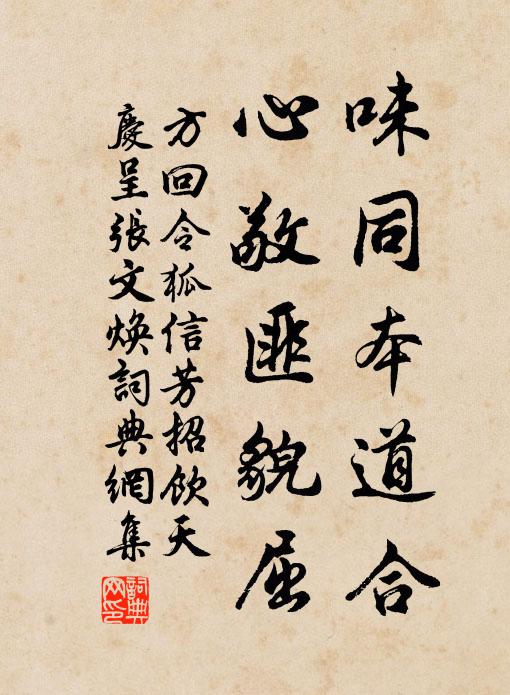 味同本道合
心敬匪貌屈
方回令狐信芳招飲天
慶呈張文煥詞典網集
詞典网印